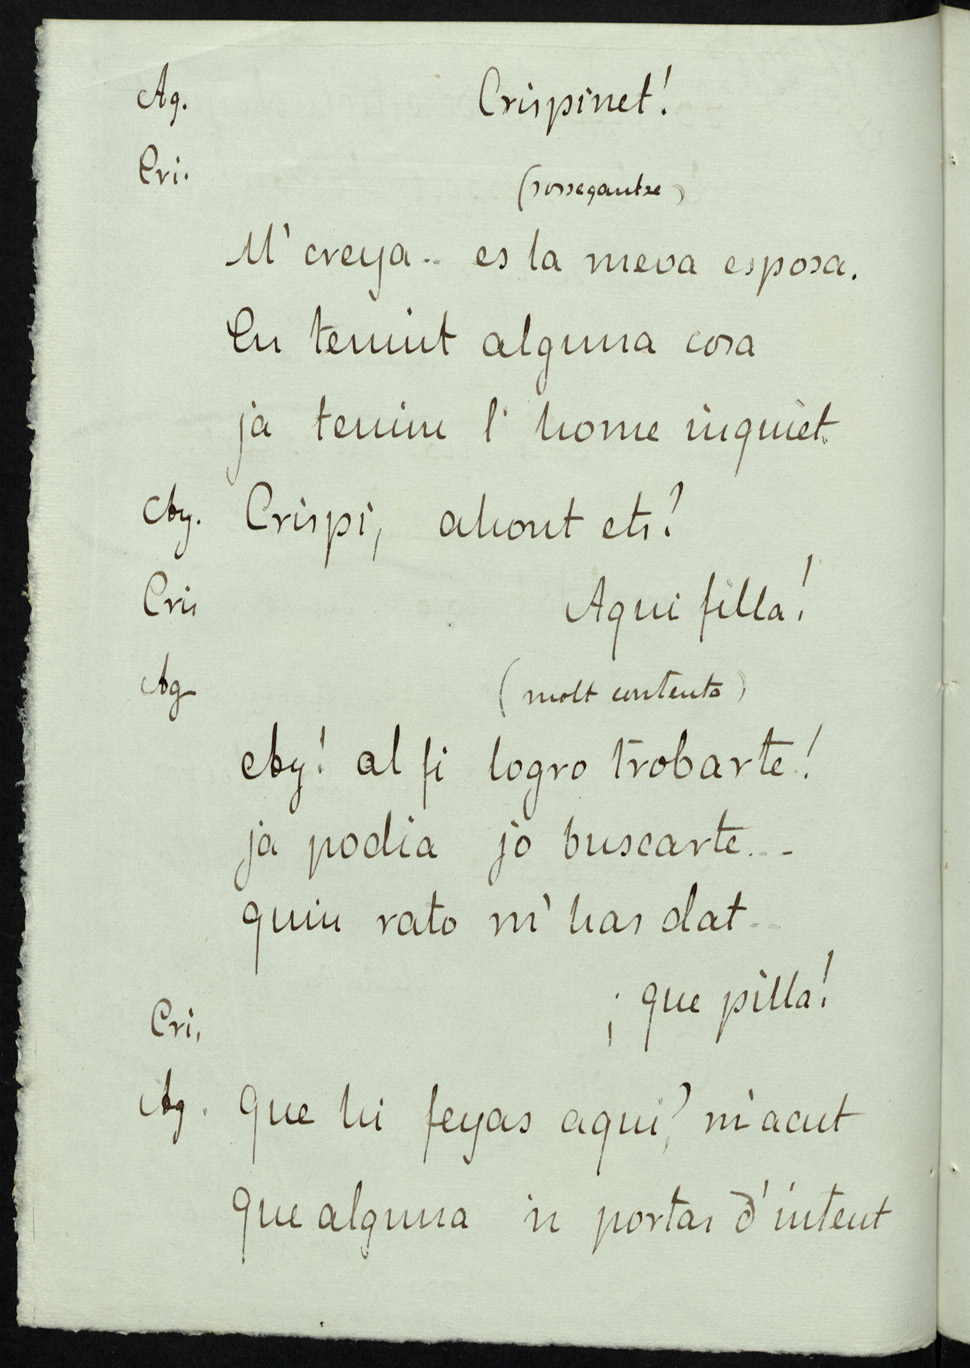 Ag. Crispinet!
Cri. (sossegantse)
M' creya.. es la meva esposa.
En tenint alguna cosa
ja tenim l' home inquiet.
Ag. Crispi, ahont ets?
Cris Aqui filla!
Ag (molt contenta)
Ay! al fi logro trobarte!
ja podia jo buscarte...
quin rato m' has dat..
Cri. ¡que pilla!
Ag. Que hi feyas aqui? m'acut
que alguna 'n portas d'intent